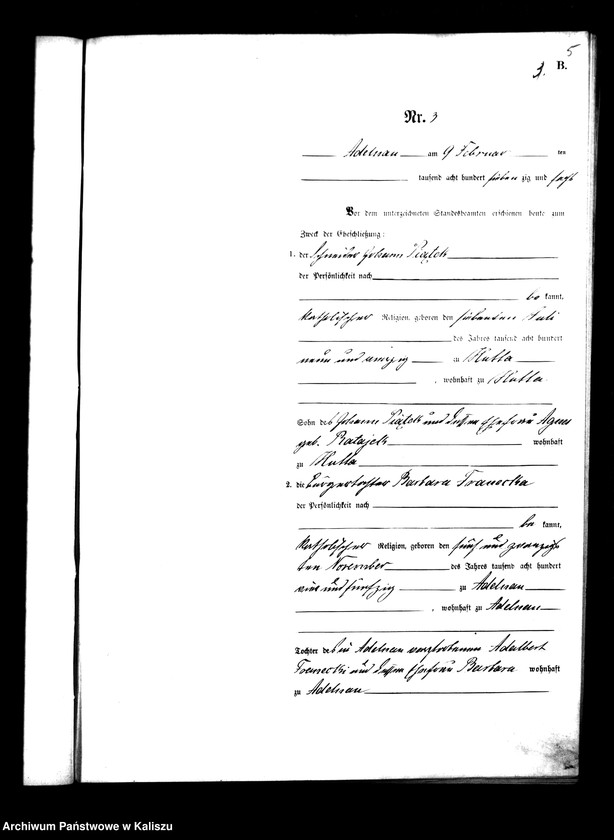 5
3. B.
Nr. 3
Adelnau am 9 Februar den
tausend acht hundert sieben zig und sechs
Vor dem unterzeichneten Standesbeamten erschienen heute zum
Zweck der Eheschließung:
1. der Schneider Johann Piątek
der Persönlichkeit nach
be kannt,
katholischer Religion, geboren den siebenten Juli
des Jahres tausend acht hundert
neun und vierzig zu Hutta
, wohnhaft zu Hutta
Sohn des Johann Piątek und dessen Ehefrau Agnes
geb. Ratajek wohnhaft
zu Hutta
2. die Bürgertochter Barbara
der Persönlichkeit nach
be kannt,
katholischer Religion, geboren den fünf und zwanzigs
ten November des Jahres tausend acht hundert
und fünfzig zu Adelnau
, wohnhaft zu Adelnau
Tochter des in Adelnau verstorbenen Adalbert
und dessen Ehefrau Barbara wohnhaft
zu Adelnau
Archiwum Państwowe w Kaliszu